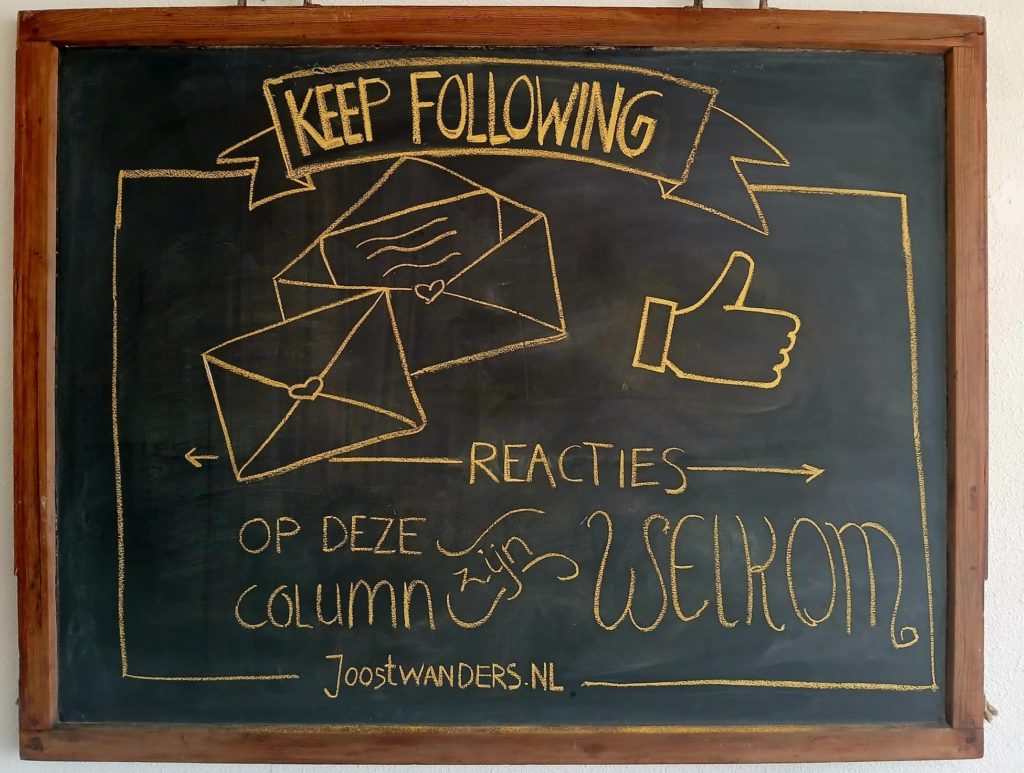 KEEP FOLLOWING
REACTIES
OP DEZE
COLUMN zijn WELKOM
JOOSTWANDERS.NL